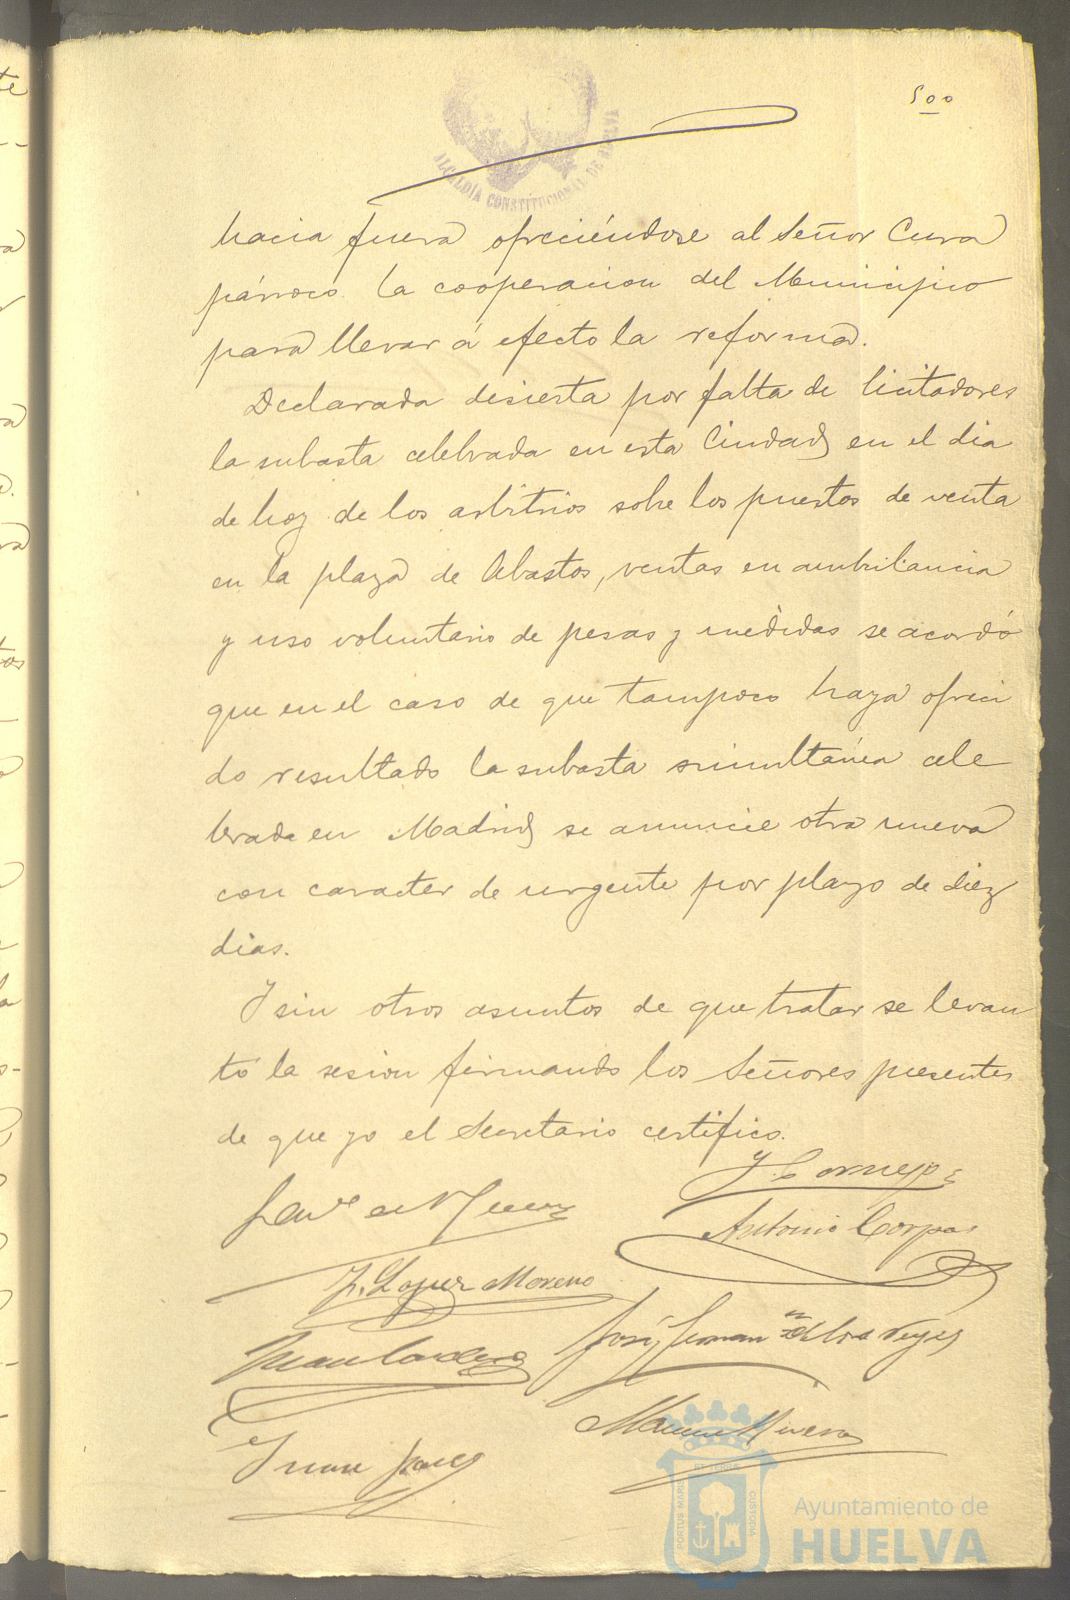 500
ALCALDÍA CONSTITUCIONAL DE HUELVA
hacia fuera ofreciéndose al Señor Cura
párroco la cooperacion del Municipio
para llevar á efecto la reforma.
Declarada desierta por falta de licitadores
la subasta celebrada en esta Ciudad en el dia
de hoy de los arbitrios sobre los puestos de venta
en la plaza de Abastos, ventas en ambulancia
y uso voluntario de pesas y medidas se acordó
que en el caso de que tampoco haya ofreci
do resultado la subasta simultánea cele
brada en Madrid se anuncie otra nueva
con caracter de urgente por plazo de diez
dias.
Y sin otros asuntos de que tratar se levan
tó la sesion firmando los Señores presentes
de que yo el Secretario certifico.
J. Cornejo
Antonio Corpas
J. Lopez Moreno
José Fernan de los Reyes
Juan
Manuel Rivera
Juan
PORTUS MARIS ET TERRÆ CUSTODIA
Ayuntamiento de
HUELVA